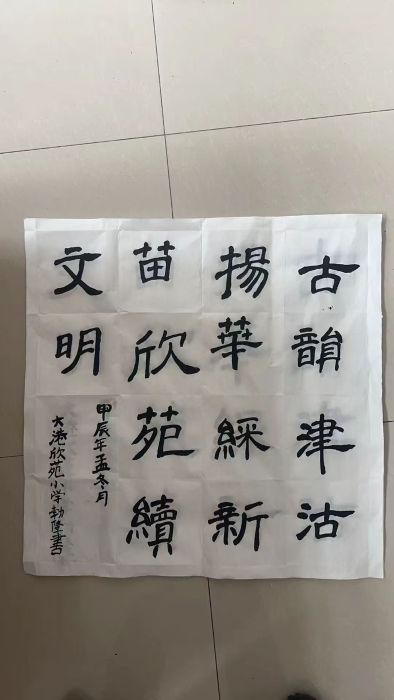 古韻津沽
揚華綵新
苗欣苑續
文明
甲辰年孟冬月
大港欣苑小学 書